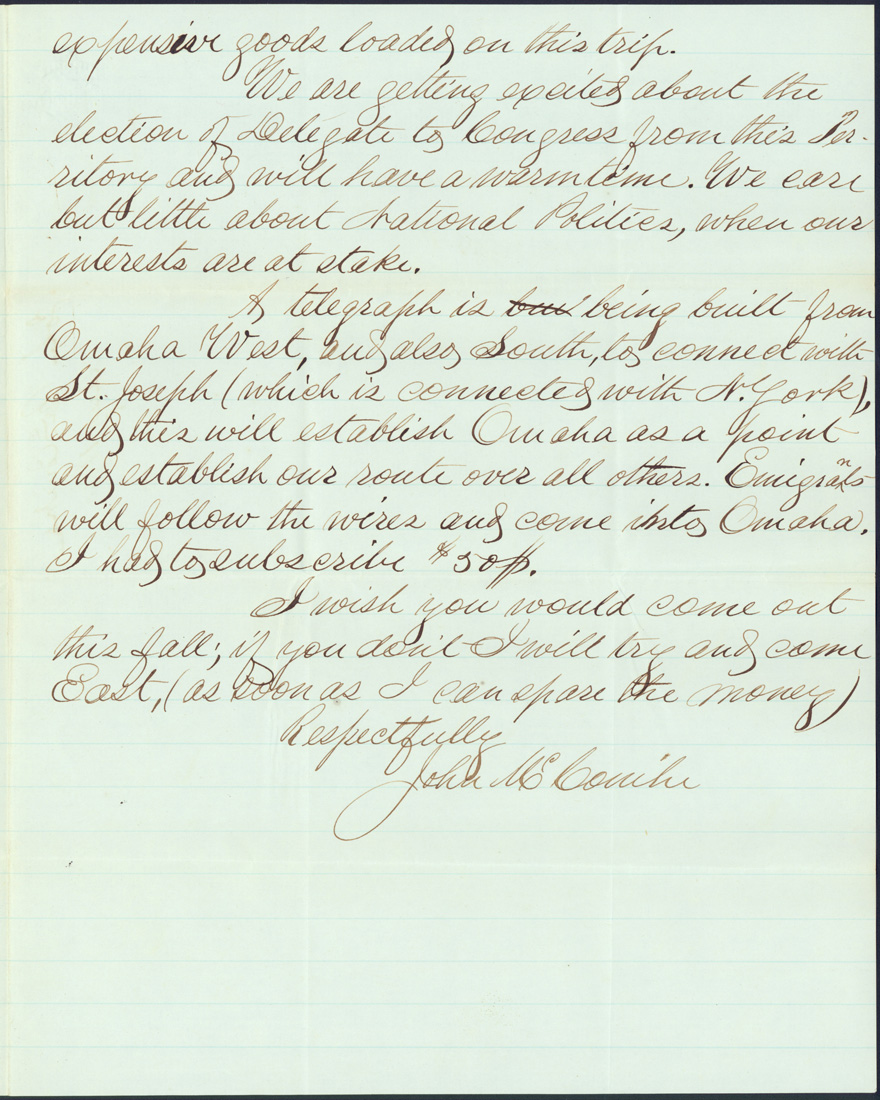 expensive goods loaded on this trip.
We are getting excited about the
election of Delegate to Congress from this Ter-
ritory and will have a warm time. We care
but little about National Politics, when our
interests are at stake.
A telegraph is being built from
Omaha West, and also South, to connect with
St. Joseph (which is connected with N. York),
and this will establish Omaha as a point
and establish our route over all others. Emigrants
will follow the wires and come into Omaha.
I had to subscribe $50
I wish you would come out
this fall; if you don't I will try and come
East, (as soon as I can spare the money)
Respectfully
John McConihe